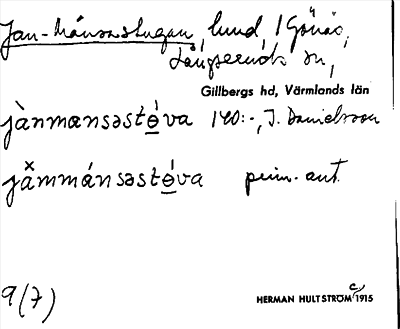 Jan-Månsastugan, lund, 1 Gönäs,
Långseruds sn,
Gillbergs hd, Värmlands län
jànmansəsté̱va 140:-, J. Danielsson
jä̌mmánsəsté̱va prim. ant.
9(7)
HERMAN HULTSTRÖM 1915